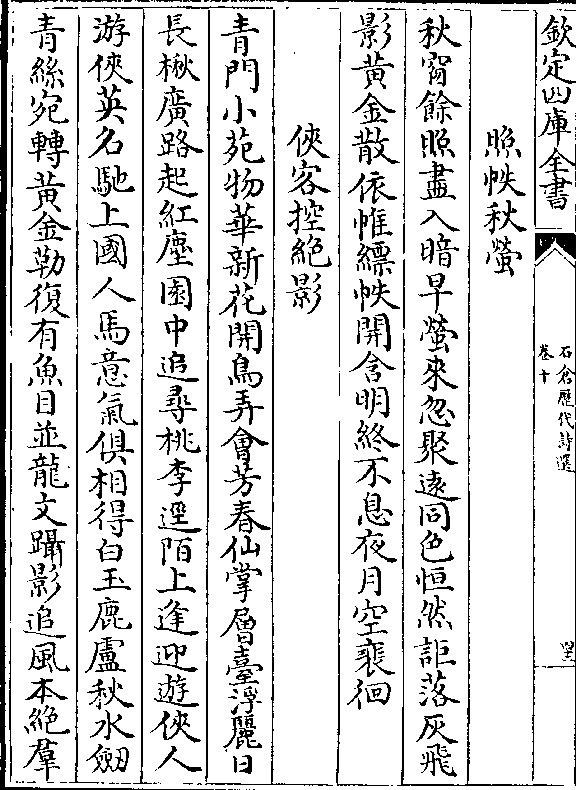 欽定四庫全書
石倉歷代詩選
卷十
照帙秋螢
秋窗餘照盡入暗早螢來忽聚遠同色恒然詎落灰飛
影黃金散依帷縹帙開含明終不息夜月空裵徊
俠客控絕影
青門小苑物華新花開鳥弄會芳春仙掌層臺浮麗日
長楸廣路起紅塵園中追尋桃李逕陌上逢迎遊俠人
游俠英名馳上國人馬意氣俱相得白玉鹿盧秋水劒
青絲宛轉黃金勒復有魚目並龍文躡影追風本絕羣